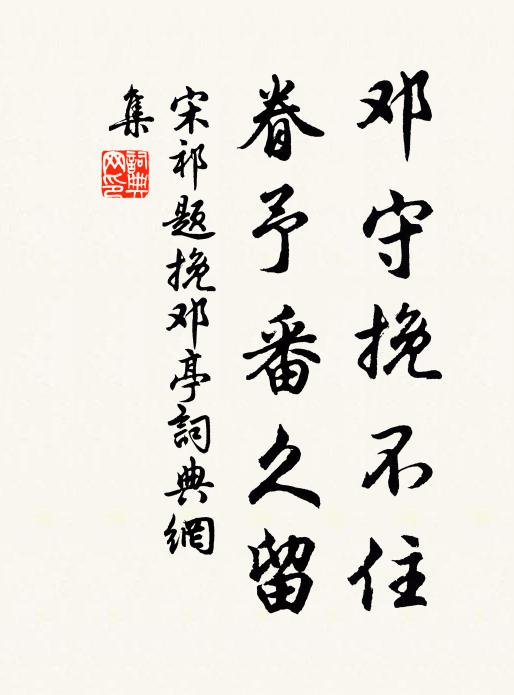 邓守挽不住
眷予番久留
宋祁题挽邓亭詞典網
集
詞典
网印